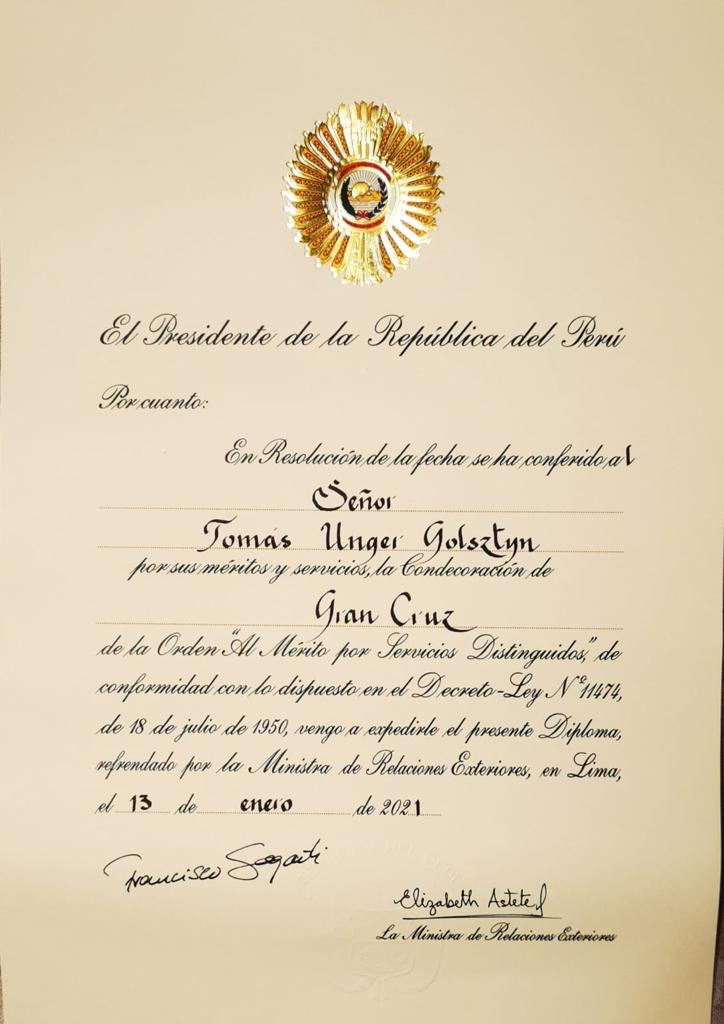 El Presidente de la República del Perú
Por cuanto:
En Resolución de la fecha se ha conferido al
Señor
Tomás Unger Golsztyn
por sus méritos y servicios, la Condecoración de
Gran Cruz
de la Orden "Al Mérito por Servicios Distinguidos", de
conformidad con lo dispuesto en el Decreto-Ley Nº 11474,
de 18 de julio de 1950, vengo a expedirle el presente Diploma,
refrendado por la Ministra de Relaciones Exteriores, en Lima,
el 13 de enero de 2021
Francisco Sagasti
Elizabeth Astete
La Ministra de Relaciones Exteriores